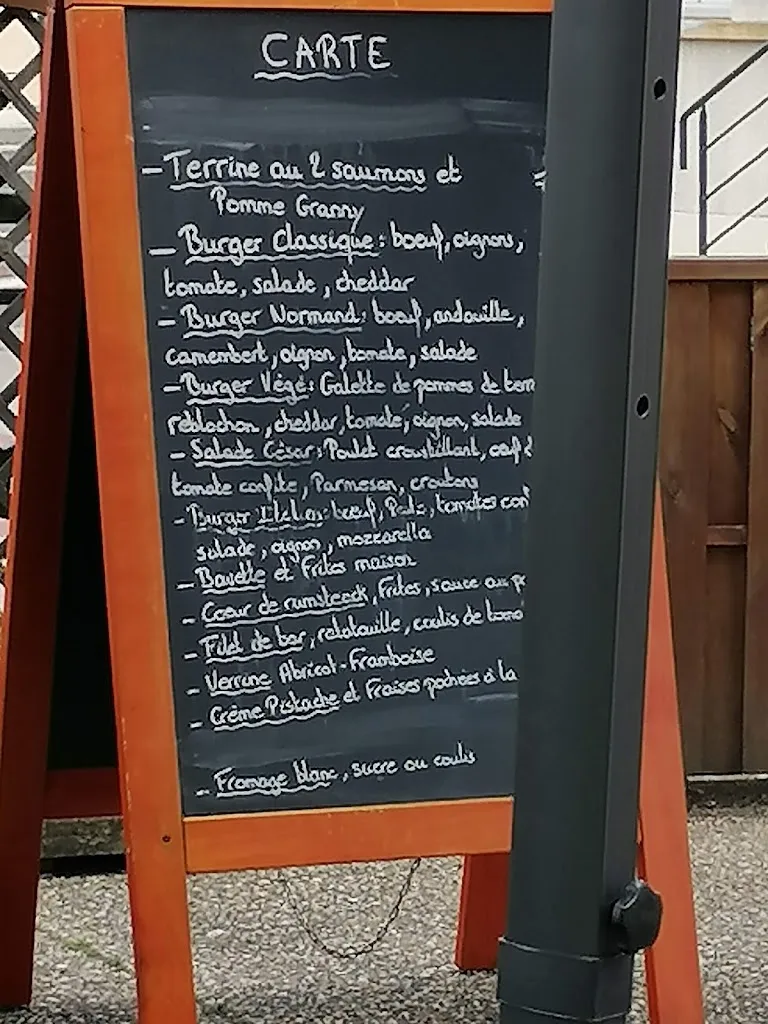 CARTE
- Terrine au 2 saumons et
Pomme Granny
- Burger Classique : boeuf, oignons,
tomate, salade, cheddar
- Burger Normand : boeuf, andouille,
camembert, oignon, tomate, salade
- Burger Végé : Galette de pommes de terre
reblochon, cheddar, tomate, oignon, salade
- Salade César : Poulet croustillant, oeuf
tomate confite, Parmesan, croutons
- Burger Italien : boeuf, tomates
salade, oignon, mozzarella
- Bavette et Frites maison
- Coeur de rumsteack, Frites, sauce au
- Filet de bar, ratatouille, coulis de
- Verrine Abricot-Framboise
- Crème Pistache et Fraises pochées à la
- Fromage blanc, sucre ou coulis